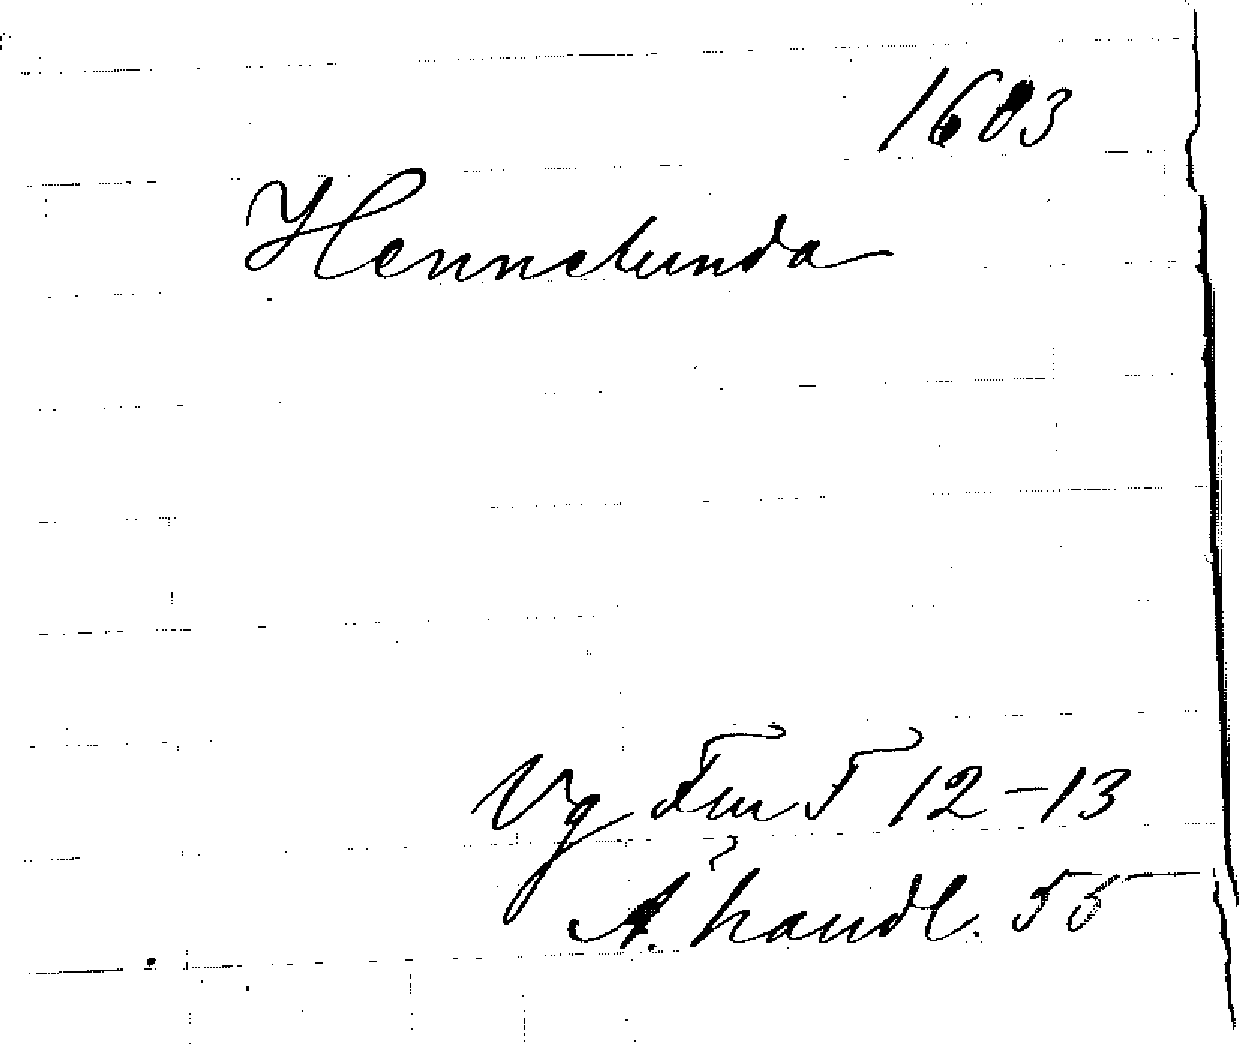 1683
Hennetunda
Vg Fm T 12-13
A. handl. 55